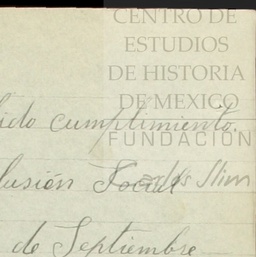 CENTRO DE
ESTUDIOS
DE HISTORIA
DE MEXICO
ido cumplimiento.
FUNDACIÓN
lusión Social
Carlos Slim
de Septiembre